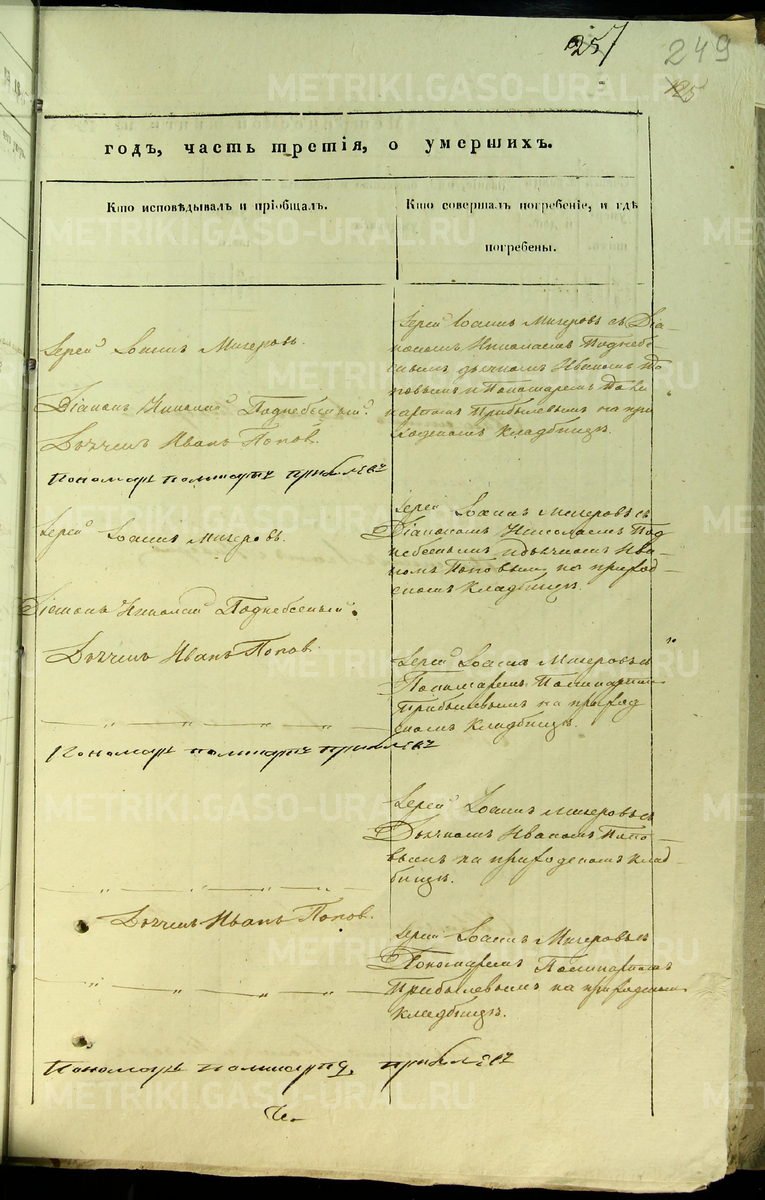 257
249
125
годъ, часть третія, о умершихъ.
Кто исповѣдывалъ и пріобщалъ.
Кто совершалъ погребеніе, и гдѣ
погребены.
Іерей Іоаннъ Мигеровъ.
Діаконъ Николай Поднебесный.
Дьячекъ Иванъ Попов.
Пономарь Поликарпъ Прибылевъ
Іерей Іоаннъ Мигеровъ съ Діа-
кономъ Николаемъ Поднебе-
снымъ дьячкомъ Иваномъ По
повымъ и Пономаремъ Поли
карпомъ Прибылевымъ на при
ходскомъ кладбищѣ.
Іерей Іоаннъ Мигеровъ.
Діаконъ Николай Поднебесный.
Дьячекъ Иванъ Попов.
Іерей Іоаннъ Мигеровъ съ
Діакономъ Николаемъ Под
небеснымъ и дьячкомъ Ива
номъ Поповымъ на приход-
скомъ кладбищѣ.
Іерей Іоаннъ Мигеровъ съ
Пономаремъ Поликарпомъ
Прибылевымъ на приход
скомъ кладбищѣ.
Пономарь Поликарпъ Прибылевъ
Іерей Іоаннъ Мигеровъ съ
Дьячкомъ Иваномъ Попо-
вымъ на приходскомъ клад-
бищѣ.
Дьячекъ Иванъ Попов.
Іерей Іоаннъ Мигеровъ съ
Пономаремъ Поликарпомъ
Прибылевымъ на приходскомъ
кладбищѣ.
Пономарь Поликарпъ Прибылевъ
METRIKI.GASO-URAL.RU